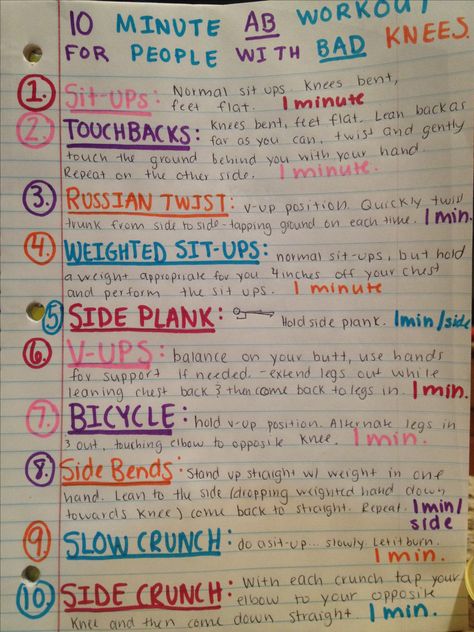 10 MINUTE AB WORKOUT
FOR PEOPLE WITH BAD KNEES.
1. Sit-Ups: Normal sit ups. Knees bent,
feet flat. 1 minute
2. TOUCHBACKS: Knees bent, feet flat. Lean back as
far as you can, twist and gently
touch the ground behind you with your hand.
Repeat on the other side. 1 minute.
3. RUSSIAN TWIST: V-up position. Quickly twist
trunk from side to side-tapping ground on each time. 1 min.
4. WEIGHTED SIT-UPS: normal sit-ups, but hold
a weight appropriate for you 4inches off your chest
and perform the sit ups. 1 minute
5 SIDE PLANK: Hold side plank. 1min/side
6. V-UPS: balance on your butt, use hands
for support if needed. -extend legs out while
leaning chest back & then come back to legs in. 1 min.
7. BICYCLE: hold v-up position. Alternate legs in
& out, touching elbow to opposite knee. 1 min.
8. Side Bends: Stand up straight w/ weight in one
hand. Lean to the side (dropping weighted hand down
towards Knee) come back to straight. Repeat. 1 min/
side
9. SLOW CRUNCH: do a sit-up... slowly. Let it burn.
1 min.
10. SIDE CRUNCH: With each crunch tap your
elbow to your opposite
Knee and then come down straight 1 min.